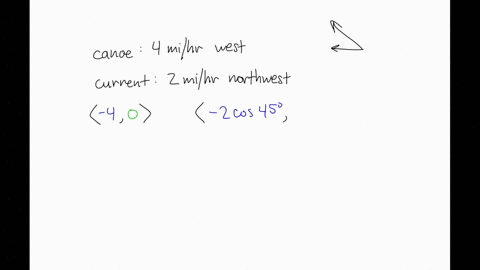 canoe: 4 mi/hr west
current: 2 mi/hr northwest
⟨-4, 0⟩ ⟨-2 cos 45°,